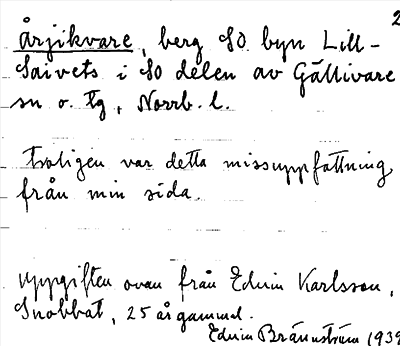 2
Årjikvare, berg SO byn Lill-
Saivets i SO delen av Gällivare
sn o. tg, Norrb. l.
Troligen var detta missuppfattning
från min sida.
Uppgiften ovan från Edvin Karlsson,
Snobbat, 25 år gammal.
Edvin Brännström 1939